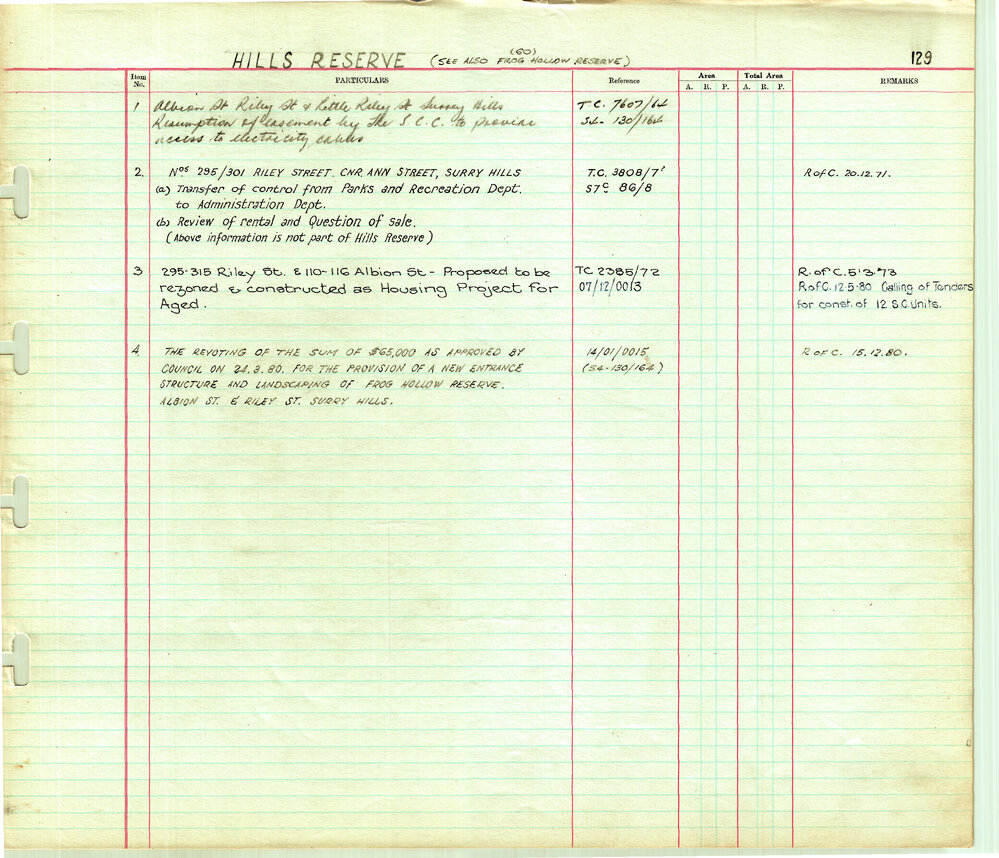 (60)
HILLS RESERVE (SEE ALSO FROG HOLLOW RESERVE) 129
Item No. PARTICULARS Reference Area Total Area REMARKS
A. R. P. A. R. P.
1 Albion St Riley St & Little Riley St Surrey Hills T.C. 7607/64
Resumption of easement by the S.C.C. to provide S4- 130/164
access to electricity cables
2. Nos 295/301 RILEY STREET. CNR. ANN STREET, SURRY HILLS T.C. 3808/7' R of C. 20.12.71.
(a) Transfer of control from Parks and Recreation Dept. S7c 86/8
to Administration Dept.
(b) Review of rental and Question of sale.
(Above information is not part of Hills Reserve)
3 295-315 Riley St. & 110-116 Albion St - Proposed to be TC 2385/72 R. of C. 5.3.73
rezoned & constructed as Housing Project for 07/12/0013 R of C. 12.5.80 Calling of Tenders
Aged. for const. of 12 S.C. Units.
4. THE REVOTING OF THE SUM OF $65,000 AS APPROVED BY 14/01/0015 R of C. 15.12.80.
COUNCIL ON 24.3.80. FOR THE PROVISION OF A NEW ENTRANCE (S4-130/164)
STRUCTURE AND LANDSCAPING OF FROG HOLLOW RESERVE.
ALBION ST. & RILEY ST. SURRY HILLS.